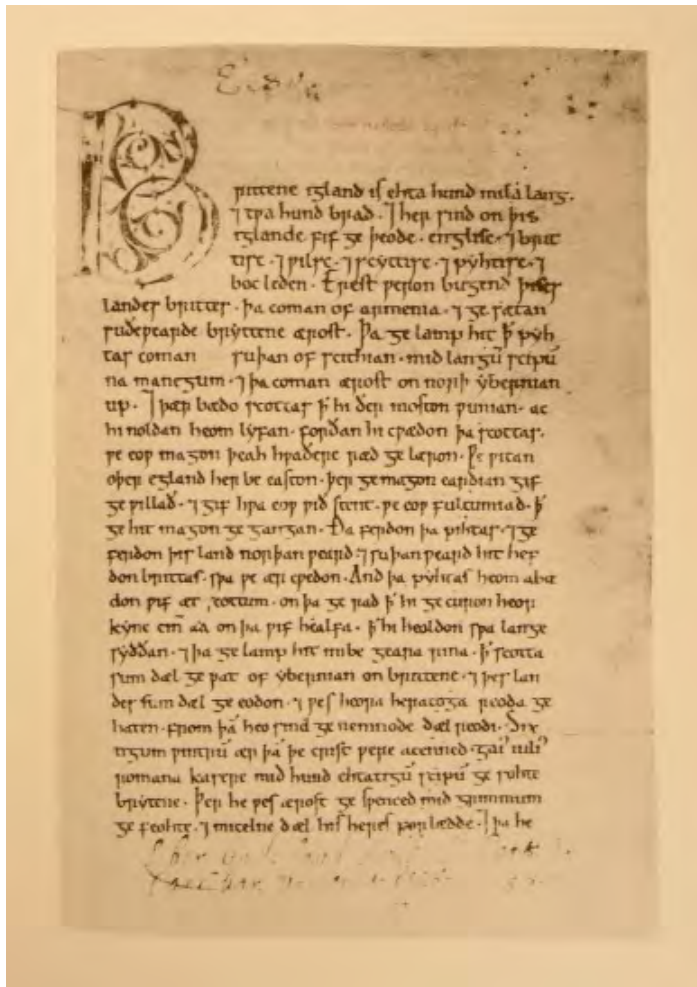 Brittene igland is ehta hund mila lang.
⁊ tƿa hund brad. ⁊ her sind on þis
iglande fif ge þeode. englisc. ⁊ brit
tisc. ⁊ ƿilsc. ⁊ scyttisc. ⁊ pyhtisc. ⁊
boc leden. Erest ƿeron bugend þises
landes brittes. þa coman of armenia. ⁊ ge sætan
suðeƿearde bryttene ærost. Þa ge lamp hit ꝥ pyh
tas coman suþan of scithian. mid langū scipū
na manegum. ⁊ þa coman ærost on norþ ybernian
up. ⁊ þær bædo scottas ꝥ hi ðer moston ƿunian. ac
hi noldan heom lyfan. forðan hi cƿædon þa scottas.
ƿe eoƿ magon þeah hƿaðere ræd ge læron. Ƿe ƿitan
oþer egland her be easton. þer ge magon eardian gif
ge ƿillað. ⁊ gif hƿa eoƿ ƿið stent. ƿe eoƿ fultumiað. ꝥ
ge hit magon ge gangan. Ða ferdon þa pihtas. ⁊ ge
ferdon þis land norþan ƿeard. ⁊ suþan ƿeard hit hef
don brittas. sƿa ƿe ær cƿedon. And þa pyhtas heom abæ
don ƿif æt scottum. on þa ge rad ꝥ hi ge curon heor
kyne cīn aa on þa ƿif healfa. ꝥ hi heoldon sƿa lange
syððan. ⁊ þa ge lamp hit imbe geara rina. ꝥ scotta
sum dæl ge ƿat of ybernian on brittene. ⁊ þes lan
des sum dæl ge eodon. ⁊ ƿes heora heratoga reoda ge
haten. from þā heo sind ge nemnode dæl reodi. Six
tigum ƿintrū ær þā þe crist ƿere acenned. gaiꝰ iuliꝰ
romana kasere mid hund ehtatigū scipū ge sohte
brytene. Þer he ƿes ærost ge sƿenced mid grimmum
ge feohte. ⁊ micelne dæl his heres forlædde. ⁊ þa he